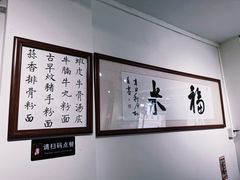 虾皮牛骨汤底
牛腩牛丸粉面
古早炆猪手粉面
蒜香排骨粉面
福来
请扫码点餐